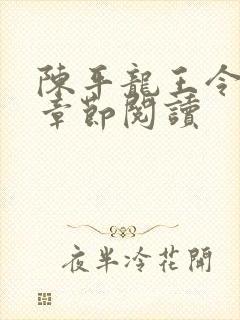 陳平龍王令
章節閱讀
夜半冷花開